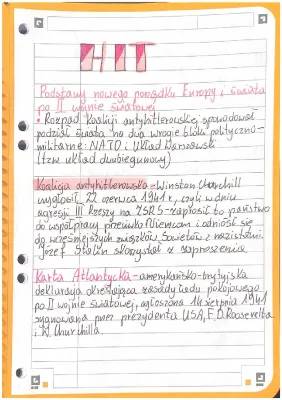 HIT
Podstawy nowego porządku Europy i świata
po II wojnie światowej
• Rozpad koalicji antyhitlerowskiej spowodował
podział świata na dwa wrogie bloki polityczno-
militarne: NATO i Układ Warszawski
(tzw. układ dwubiegunowy)
Koalicja antyhitlerowska - Winston Churchill
wygłosił, 22 czerwca 1941 r, czyli w dniu
agresji III Rzeszy na ZSRS - zaprosił to państwo
do współpracy przeciwko Niemcom i odniósł się
do wcześniejszych związków Sowietów z nazistami.
Józef Stalin skorzystał z zaproszenia
Karta Atlantycka - amerykańsko-brytyjska
deklaracja określająca zasady ładu pokojowego
po II wojnie światowej, ogłoszona 14 sierpnia 1941
sygnowana przez prezydenta USA, F.D. Roosevelta
i W. Churchilla.